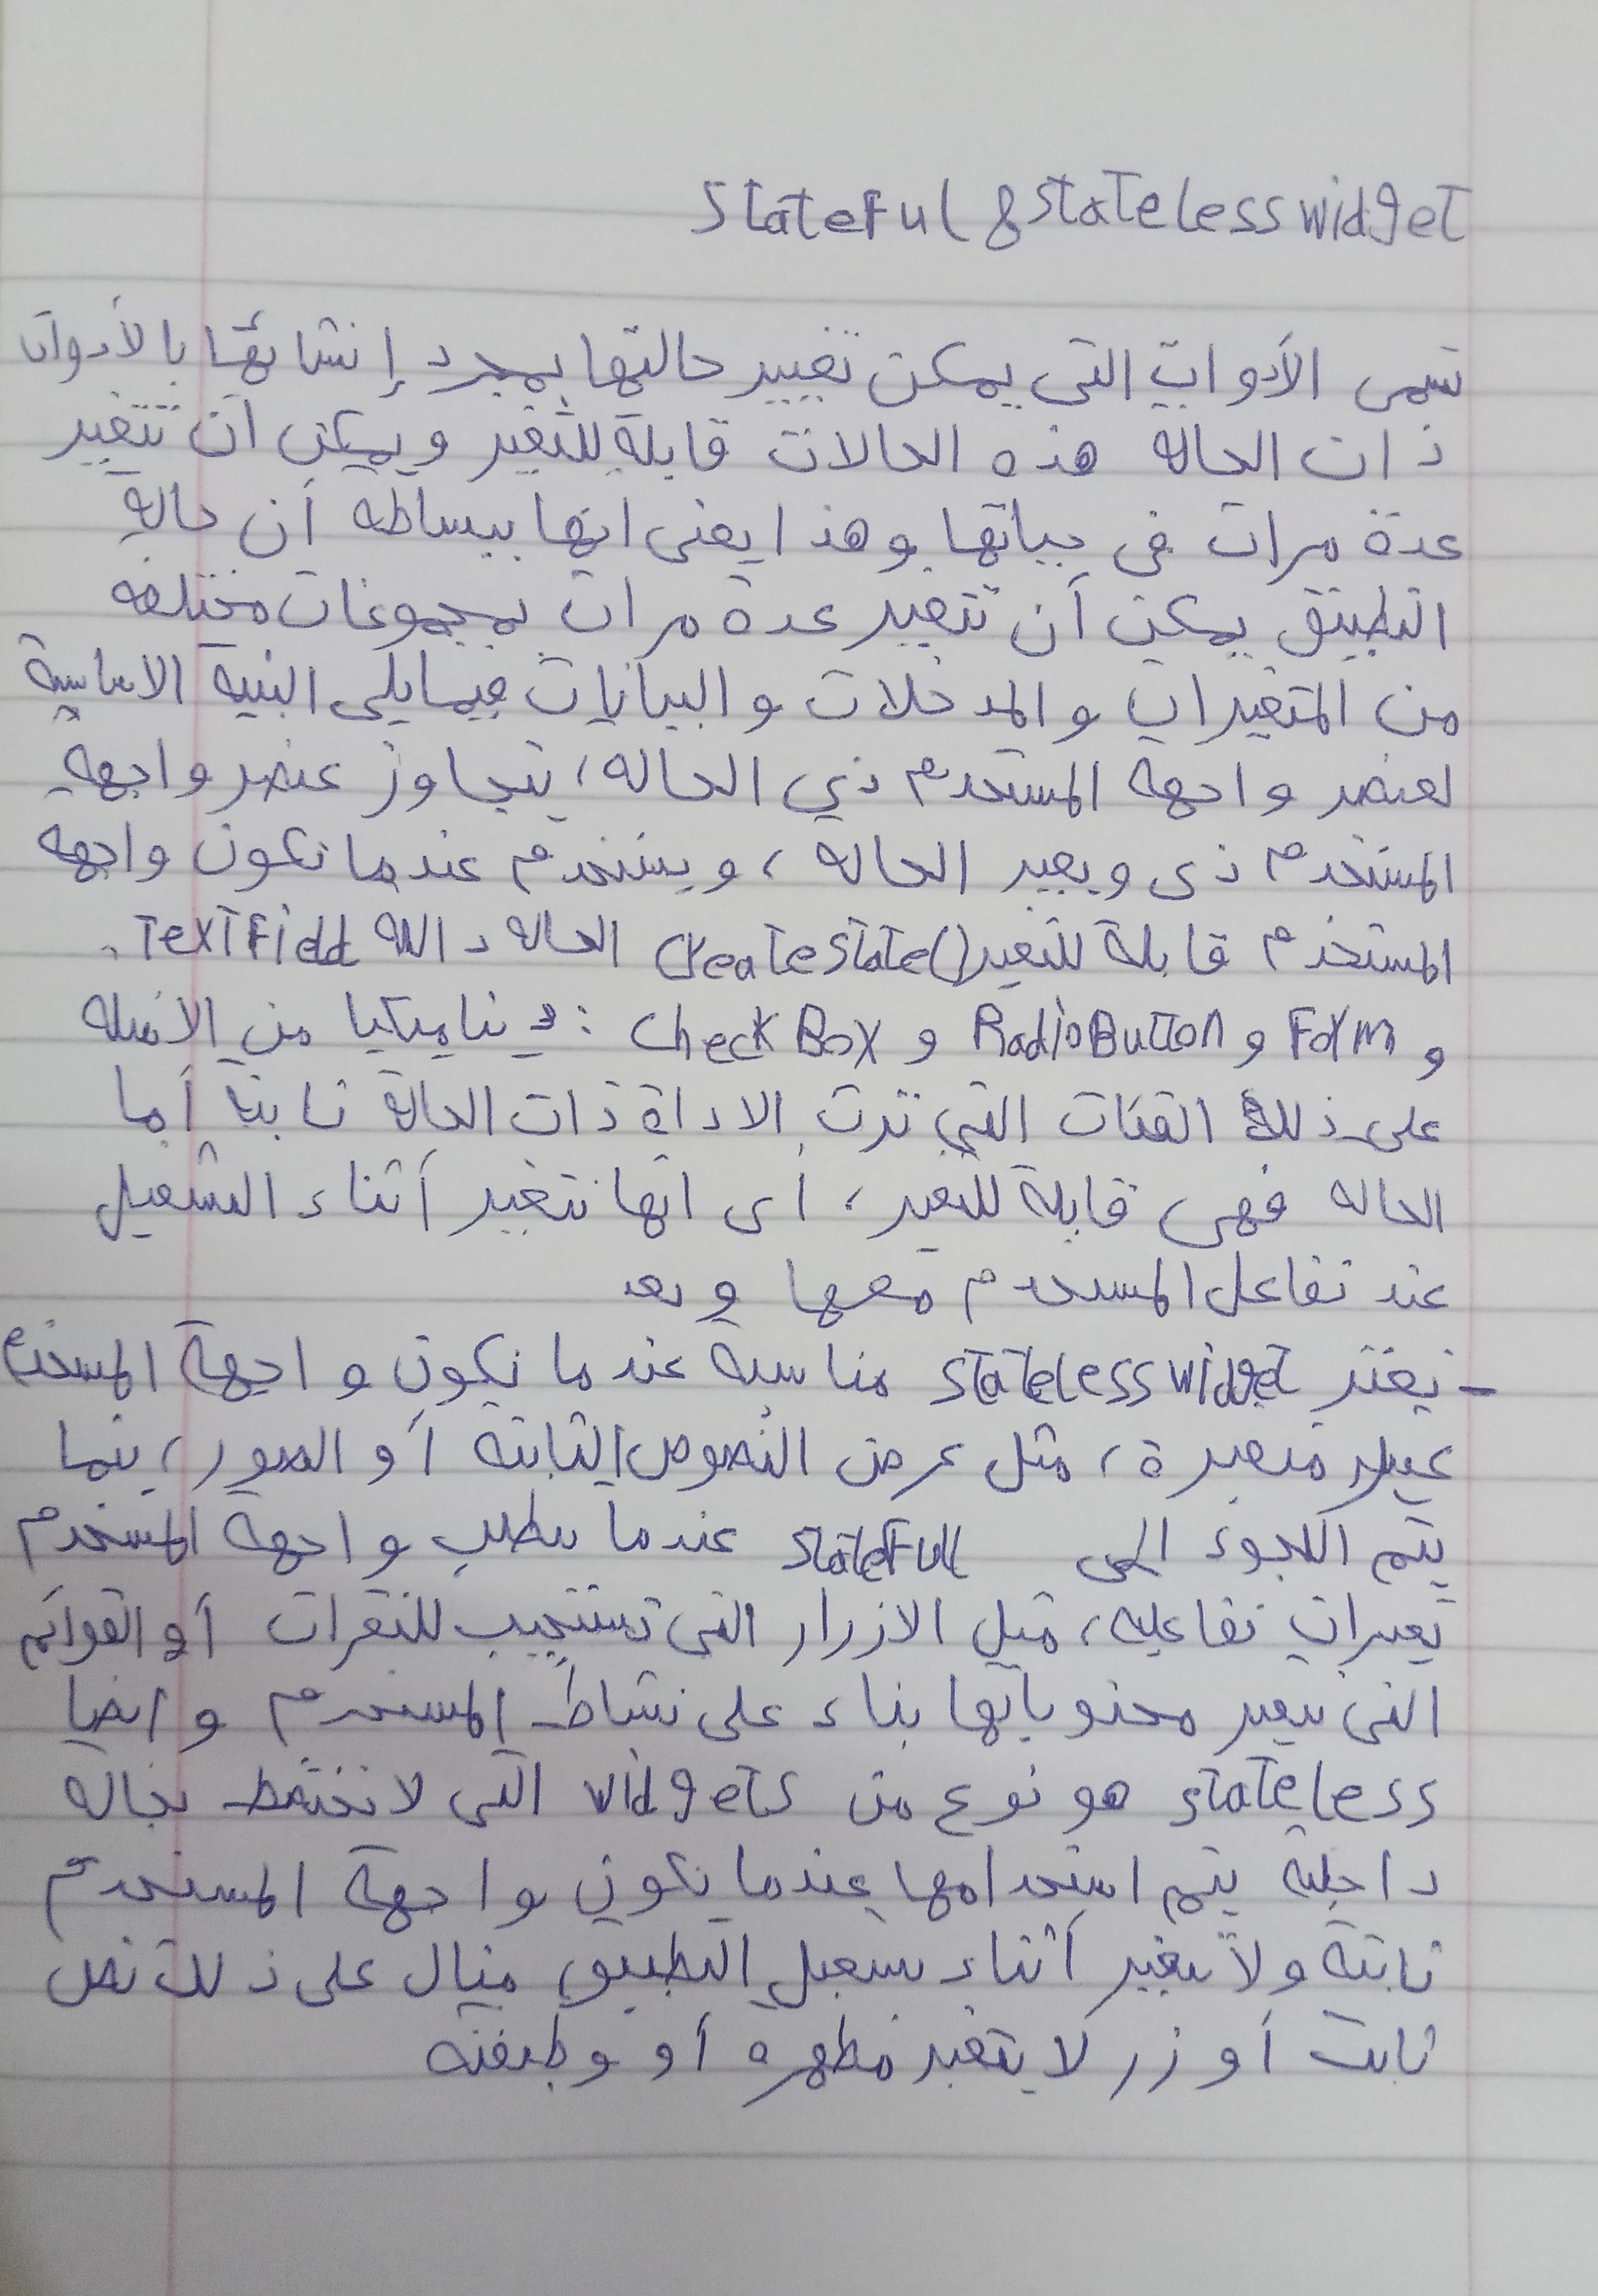 Stateful & stateless widget
تسمى الأدوات التي يمكن تغيير حالتها بمجرد إنشائها بالأدوات
ذات الحالة هذه الحالات قابلة للتغير ويمكن ان تتغير
عدة مرات في حياتها وهذا يعنى انها ببساطه أن حالة
التطبيق يمكن أن تتغير عدة مرات بمجموعات مختلفه
من المتغيرات والمدخلات والبيانات فيمايلى البنية الاساسية
لعنصر واجهة المستخدم ذي الحاله، يتجاوز عنصر واجهة
المستخدم ذى ويعير الحاله، ويستخدم عندما تكون واجهه
المستخدم قابلة للتغير createState() الحاله دالله TextField.
و Form و RadioButton و CheckBox : ديناميكيا من الامثله
على ذلك الفئات التي ترث الاداة ذات الحالة ثابتة أما
الحاله فهى قابلة للتغير، أى انها تتغير أثناء التشغيل
عند تفاعل المستخدم معها وبعد
- تعتبر stateless widget مناسبة عندما تكون واجهة المستخدم
غير متغيرة، مثل عرض النصوص الثابته أو الصور، بينما
يتم اللجوء الى statefull عندما يتطلب واجهة المستخدم
تغيرات تفاعليه، مثل الازرار التى تستجيب للنقرات أو القوائم
التى تتغير محتوياتها بناء على نشاط المستخدم وايضا
stateless هو نوع من widgets التى لا تحتفظ بحاله
داخلية يتم استخدامها عندما يكون واجهة المستخدم
ثابته ولا تتغير أثناء تشغيل التطبيق مثال على ذلك نص
ثابت أو زر لا يتغير مظهره أو وظيفته